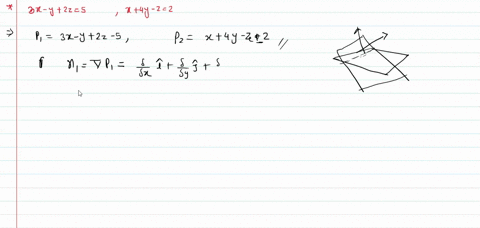 * 3x-y+2z=5 , x+4y-z=2
⇒ P₁ = 3x-y+2z-5 , P₂ = x+4y-z-2 //
n₁ = ∇P₁ = δ/δx î + δ/δy ĵ + δ